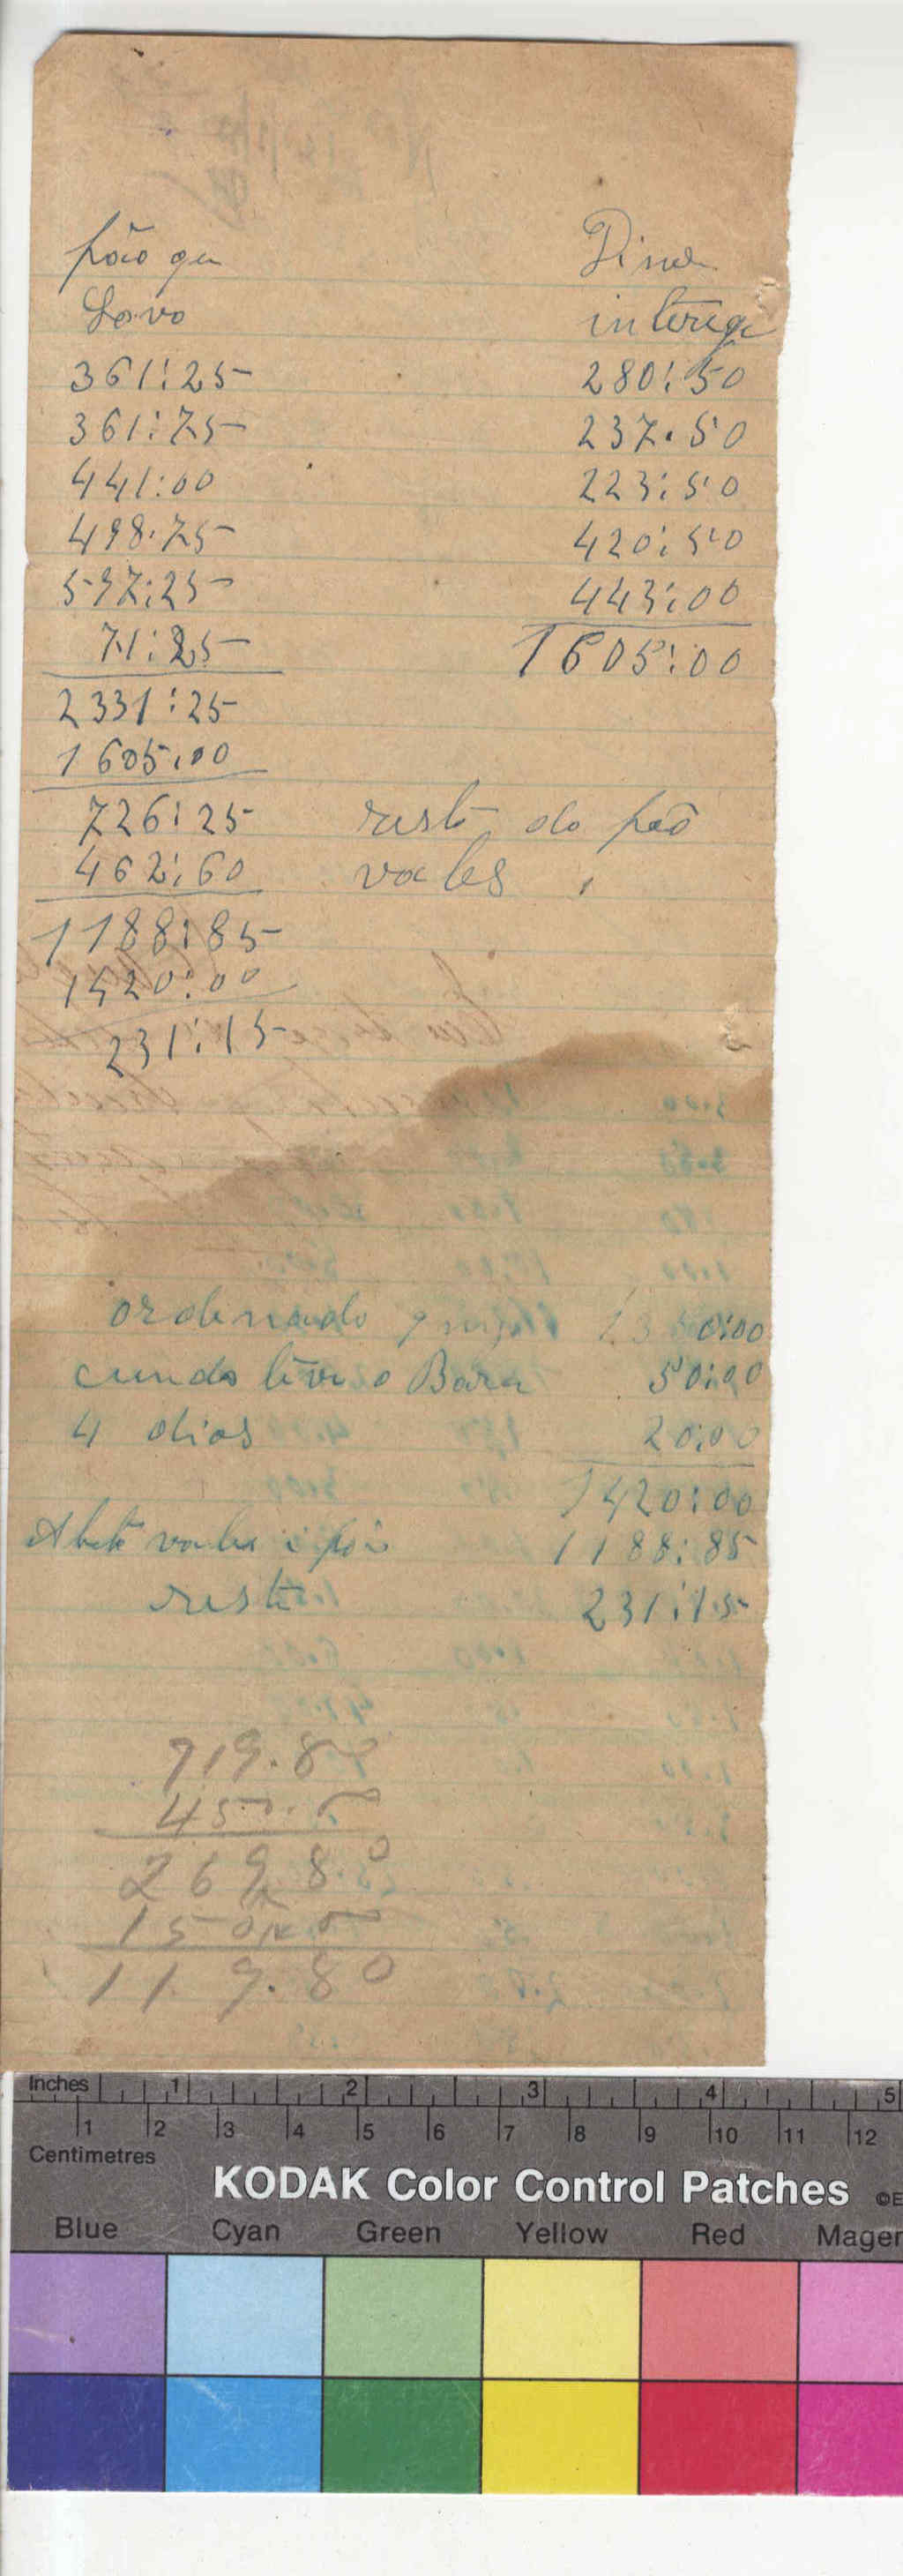 pão que Dine
Lavo interega
361:25 280:50
361:75 237.50
441:00 223:50
498.75 420:50
597:25 443:00
71:25 1605:00
2331:25
1605:00
726:25 resto do pão
462:60 vales
1188:85
1420:00
231:15
ordenado 1350:00
50:00
4 dias 20:00
1420:00
vales i pão 1188:85
resto 231:15
719.80
450.0
269.80
150.0
119.80
Inches 1 2 3 4 5
1 2 3 4 5 6 7 8 9 10 11 12
Centimetres
KODAK Color Control Patches ©E
Blue Cyan Green Yellow Red Magen